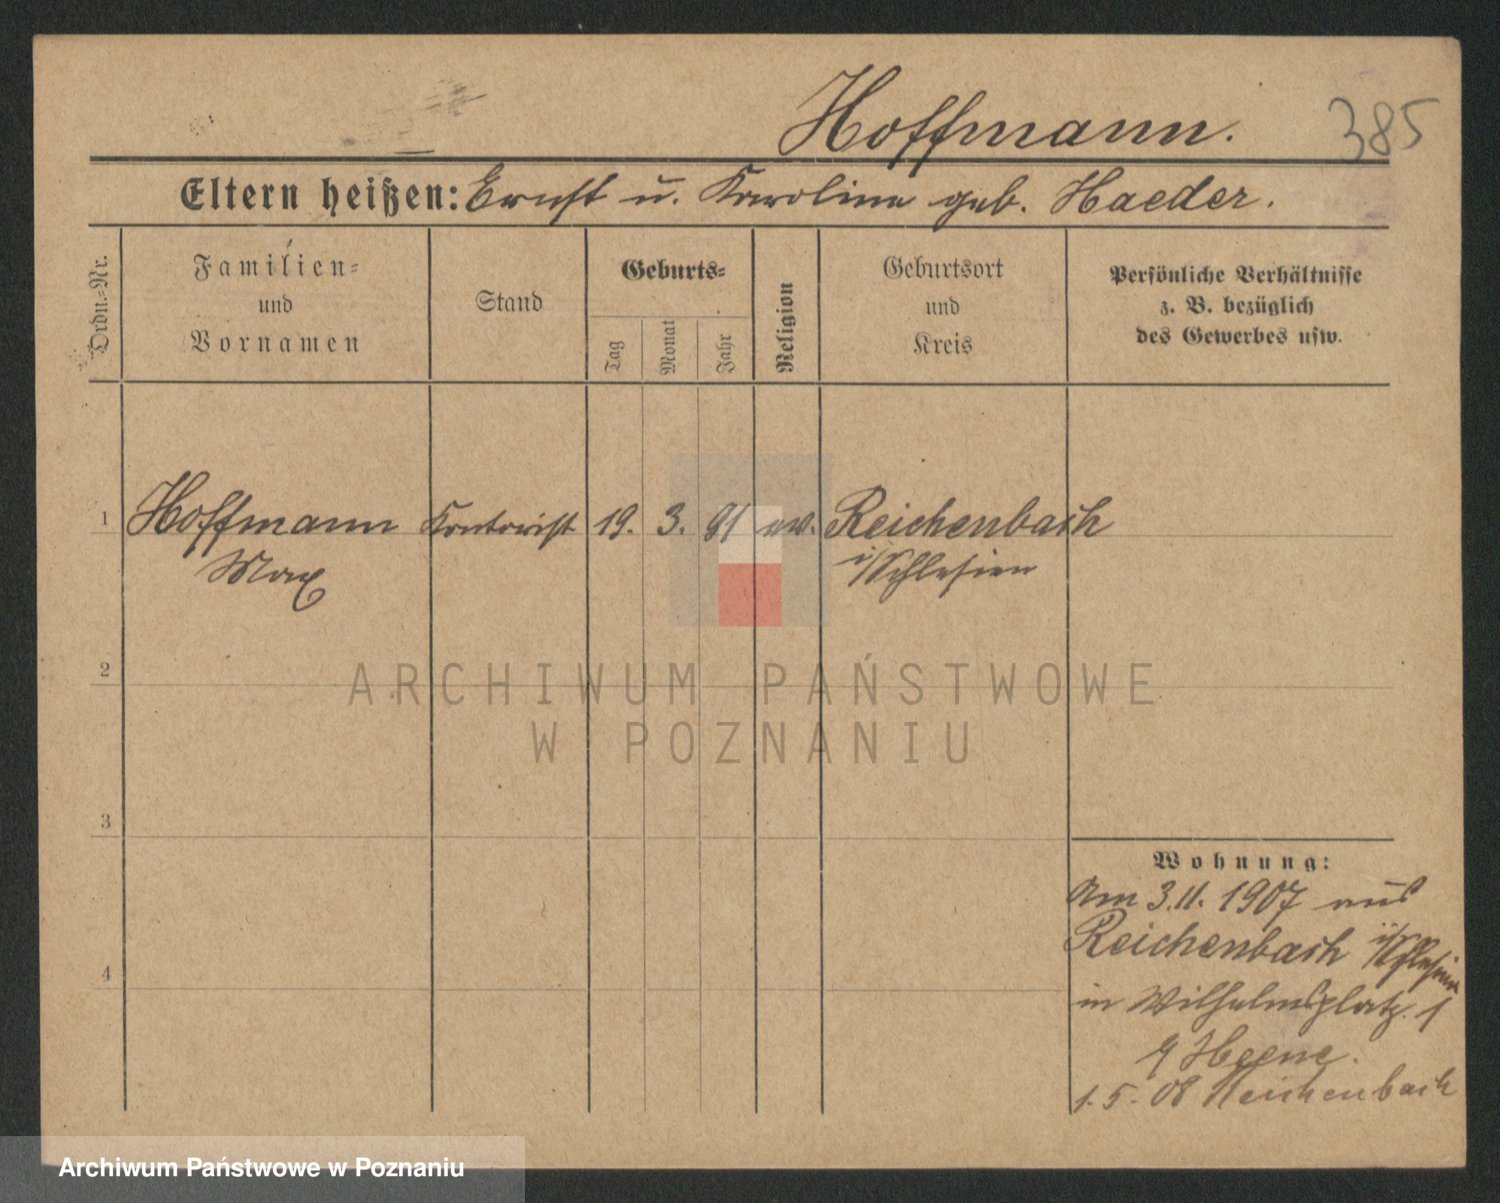 Hoffmann.
385
Eltern heißen: Ernst u. Karoline geb. Haeder.
Ordn.-Nr.
Familien-
und
Vornamen
Stand
Geburts-
Tag
Monat
Jahr
Religion
Geburtsort
und
Kreis
Persönliche Verhältnisse
z. B. bezüglich
des Gewerbes usw.
1 Hoffmann Kontorist 19. 3. 81 ev. Reichenbach
Max i/Schlesien
2
3
4
Wohnung:
Am 3.11.1907 aus
Reichenbach i/Schlesien
in Wilhelmsplatz. 1
Heene.
1.5.08 Reichenbach
ARCHIWUM PAŃSTWOWE
W POZNANIU
Archiwum Państwowe w Poznaniu